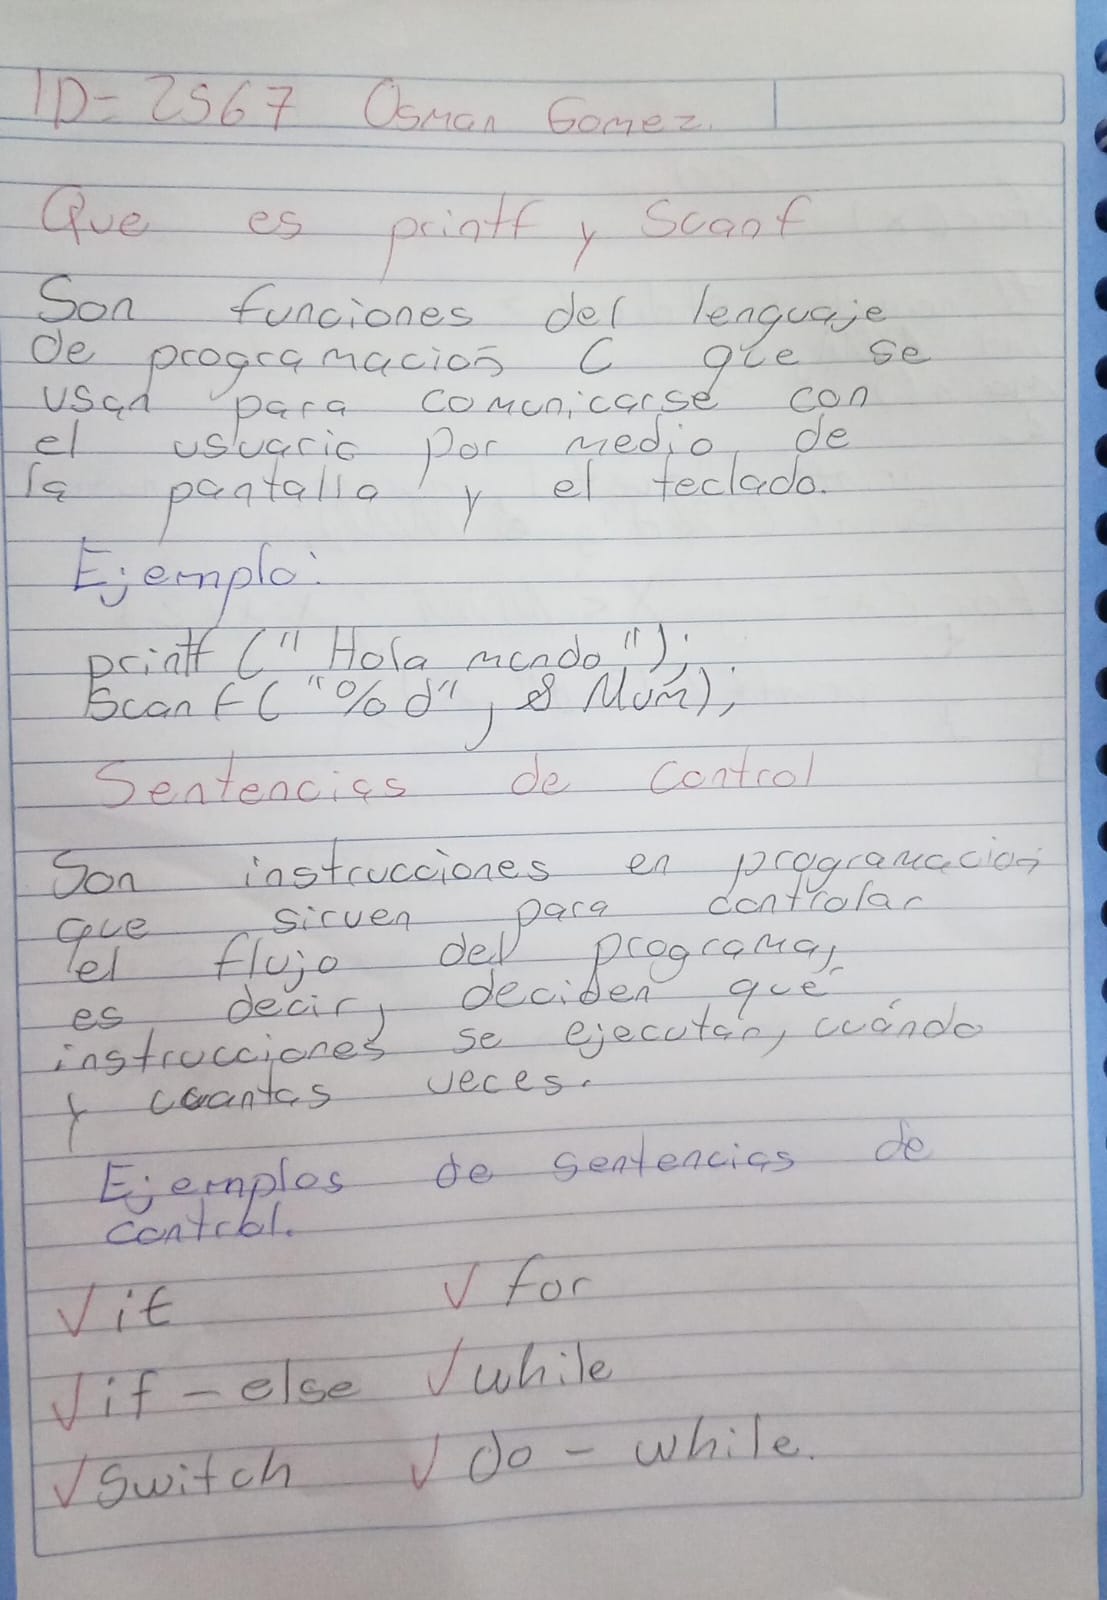 ID= 2567 Osman Gomez.
Que es printf y Scanf
Son funciones del lenguaje
de programación C que se
usan para comunicarse con
el usuario por medio de
la pantalla y el teclado.
Ejemplo:
printf (" Hola mundo");
Scanf ( "% d", & Num);
Sentencias de control
Son instrucciones en programación
que sirven para controlar
el flujo del programa,
es decir, deciden qué
instrucciones se ejecutan, cuándo
y cuantas veces.
Ejemplos de sentencias de
control.
√ if √ for
√ if - else √ while
√ Switch √ do - while.